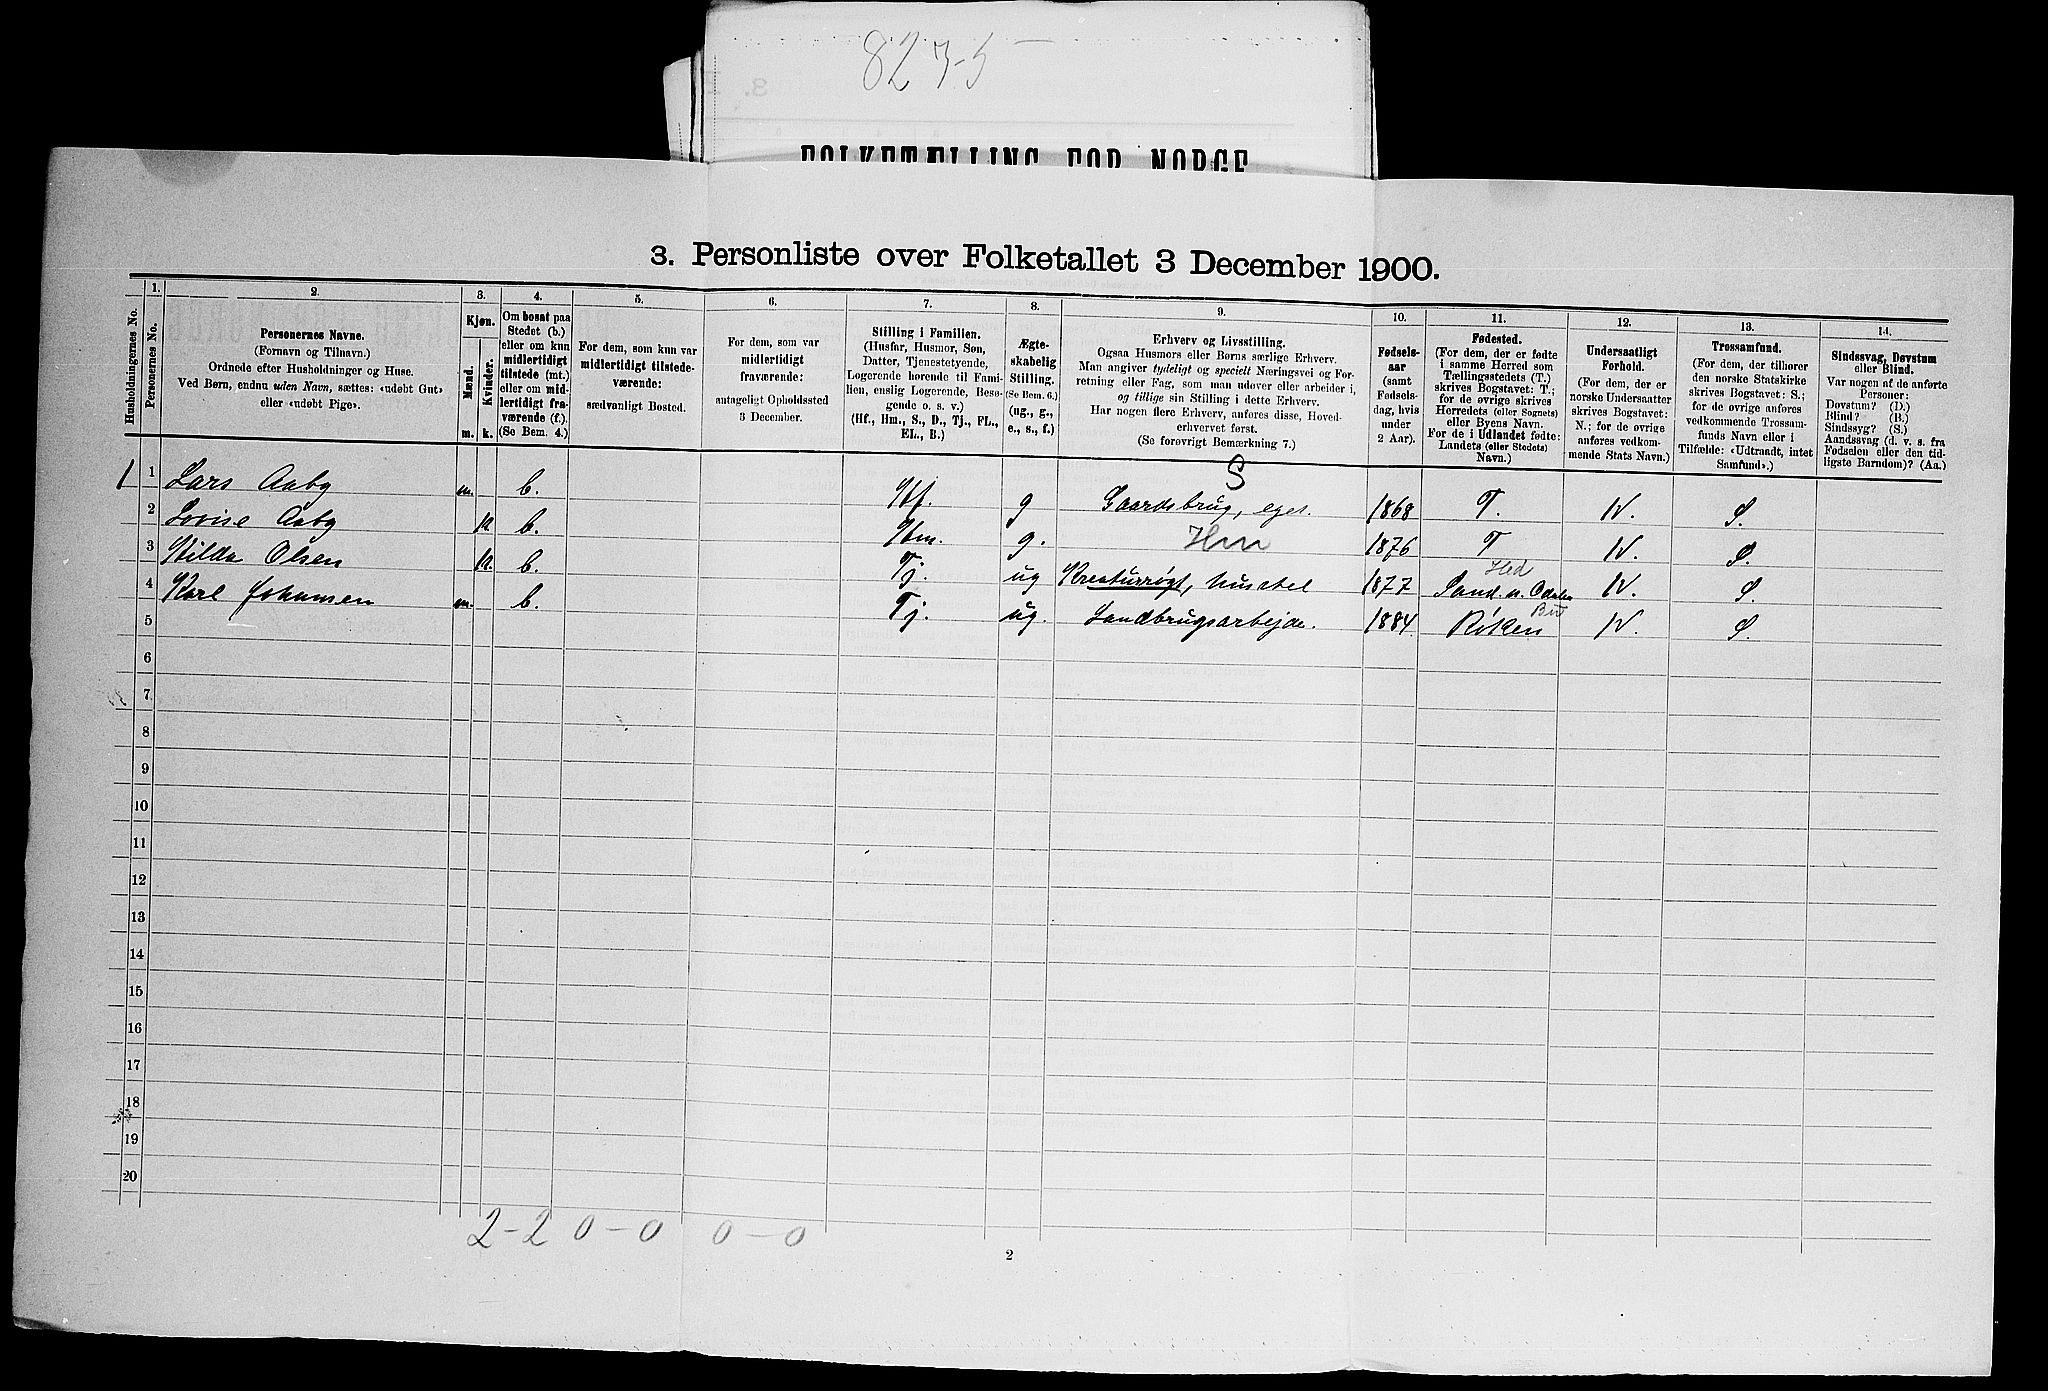 8275
FOLKETÆLLING FOR NORGE
3. Personliste over Folketallet 3 December 1900.
Husholdningernes No.
1.
Personernes No.
2.
Personernes Navne.
(Fornavn og Tilnavn.)
Ordnede efter Husholdninger og Huse.
Ved Børn, endnu uden Navn, sættes: «udøbt Gut»
eller «udøbt Pige».
3.
Kjøn.
Mænd.
m.
Kvinder.
k.
4.
Om bosat paa
Stedet (b.)
eller om kun
midlertidigt
tilstede (mt.)
eller om mid-
lertidigt fra-
værende (f.).
(Se Bem. 4.)
5.
For dem, som kun var
midlertidigt tilstede-
værende:
sædvanligt Bosted.
6.
For dem, som var
midlertidigt
fraværende:
antageligt Opholdssted
3 December.
7.
Stilling i Familien.
(Husfar, Husmor, Søn,
Datter, Tjenestetyende,
Logerende hørende til Fami-
lien, enslig Logerende, Besø-
gende o. s. v.)
(Hf., Hm., S., D., Tj., FL.,
EL., B.)
8.
Ægte-
skabelig
Stilling.
(Se Bem. 6.)
(ug., g.,
e., s., f.)
9.
Erhverv og Livsstilling.
Ogsaa Husmors eller Børns særlige Erhverv.
Man angiver tydeligt og specielt Næringsvei og For-
retning eller Fag, som man udøver eller arbeider i,
og tillige sin Stilling i dette Erhverv.
Har nogen flere Erhverv, anføres disse, Hoved-
erhvervet først.
(Se forøvrigt Bemærkning 7.)
10.
Fødsels-
aar
(samt
Fødsels-
dag, hvis
under
2 Aar).
11.
Fødested.
(For dem, der er fødte
i samme Herred som
Tællingsstedets (T.)
skrives Bogstavet: T.;
for de øvrige skrives
Herredets (eller Sognets)
eller Byens Navn.
For de i Udlandet fødte:
Landets (eller Stedets)
Navn.)
12.
Undersaatligt
Forhold.
(For dem, der er
norske Undersaatter
skrives Bogstavet:
N.; for de øvrige
anføres vedkom-
mende Stats Navn.)
13.
Trossamfund.
(For dem, der tilhører
den norske Statskirke
skrives Bogstavet: S.;
for de øvrige anføres
vedkommende Trossam-
funds Navn eller i
Tilfælde: «Udtraadt, intet
Samfund».)
14.
Sindssvag, Døvstum
eller Blind.
Var nogen af de anførte
Personer:
Døvstum? (D.)
Blind? (B.)
Sindssyg? (S.)
Aandssvag (d. v. s. fra
Fødselen eller den tid-
ligste Barndom)? (Aa.)
S
1 1 Lars Aaby m. b. Hf. g Gaardsbrug, eges. 1868 T. N. S.
2 Lovise Aaby k b. Hm. g. Hm 1876 T N. S.
Hed
3 Hilda Olsen k. b. Tj. ug Kreaturrøgt, husstel 1877 Sand. n. Odalen N. S.
Bu
4 Karl Johansen m. b. Tj. ug. Landbrugsarbejde. 1884 Røken N. S.
5
6
7
8
9
10
11
12
13
14
15
16
17
18
19
20
2-2 0-0 0-0
2